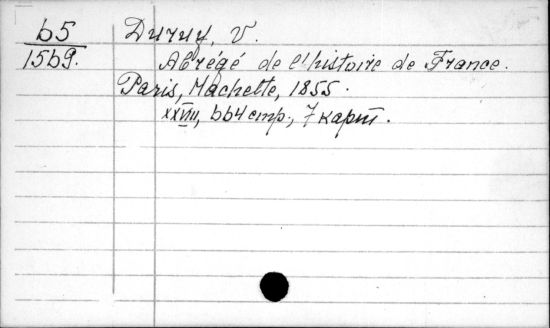 65
Duruy, V.
1569.
Abrégé de l'histoire de France.
Paris, Hachette, 1855.
XXVIII, 664 стр., 7 карт.